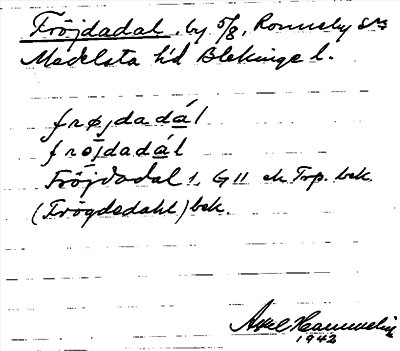 Fröjdadal, by 5/8, Ronneby sns
Medelsta hd Blekinge l.
frøjdadál
frøjdadál
Fröjdadal 1, G 11 ek Trp. bek.
(Frögdsdahl) bek.
Axel Hammelin
1942